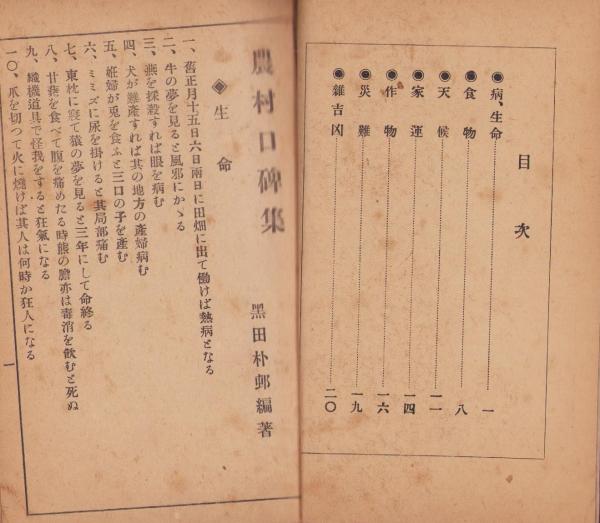 目次
◉病、生命……一
◉食物……八
◉天候……一一
◉家運……一四
◉作物……一六
◉災難……一九
◉雜吉凶……二〇
農村口碑集
黑田朴邨編著
◈生命
一、舊正月十五日六日兩日に田畑に出て働けば熱病となる
二、牛の夢を見ると風邪にかゝる
三、燕を採殺すれば眼を病む
四、犬が難產すれば其の地方の產婦病む
五、姙婦が兎を食ふと三口の子を產む
六、ミミズに尿を掛けると其局部痛む
七、東枕に寢て猿の夢を見ると三年にして命終る
八、甘藷を食べて腹を痛めたる時熊の膽亦は毒消を飲むと死ぬ
九、織機道具で怪我をすると狂氣になる
一〇、爪を切つて火に燻けば其人は何時か狂人になる
一